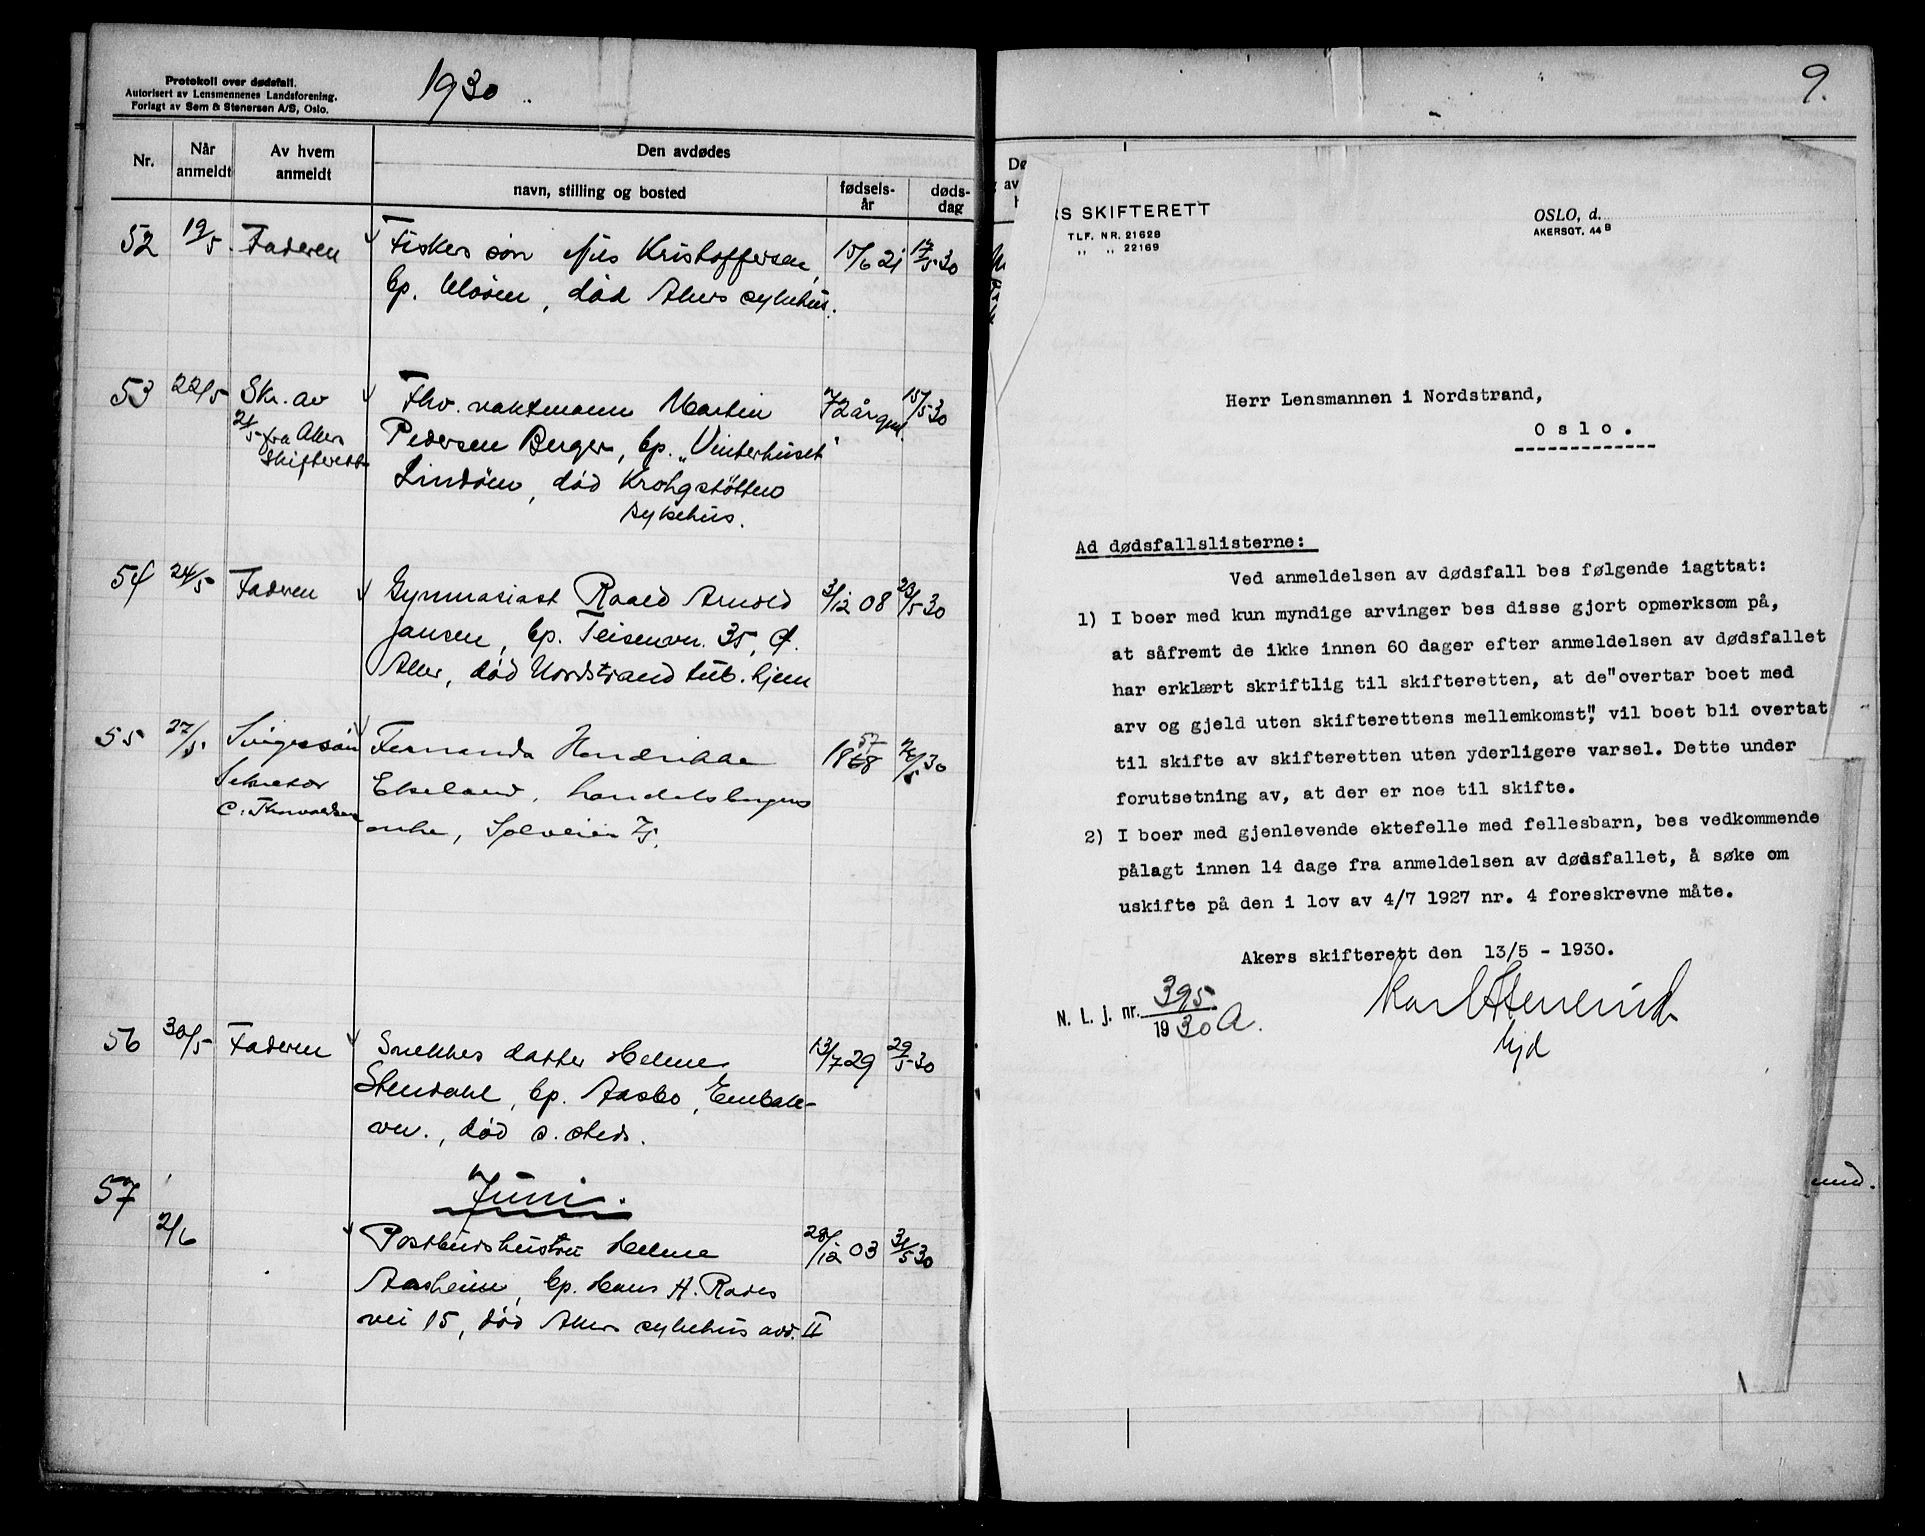 Protokoll over dødsfall.
Autorisert av Lensmennenes Landsforening.
Forlagt av Sem & Stenersen A/S, Oslo.
1930
Nr.
Når anmeldt
Av hvem anmeldt
Den avdødes
navn, stilling og bosted
fødsels-år
døds-dag
52 19/5 Faderen Fiskers søn Nils Kristoffersen, 15/6 21 17/5 30
bp. Ulvøen, død Akers sykehus.
53 22/5 Skr. av Fhv. vaktmann Martin 72 år gml. 15/5 30
21/5 fra Akers Pedersen Berger, bp. "Vinterhuset"
Skifterett Lindøen, død Krohgstøtten
sykehus.
54 24/5 Faderen Gymnasiast Roald Arnold 3/12 08 20/5 30
Jansen, bp. Teisenvn. 35, Ø.
Aker, død Nordstrand tub. hjem
55 27/5 Svigersøn Fernanda Hendrikke 1868 57 26/5 30
Sekretær Ekeland, handelsborgers
C. Thorvaldsen enke, Solveien 71.
56 30/5 Faderen Snekkers datter Helene 13/7 29 29/5 30
Stendahl, bp. Aasbo, Enebak-
vn., død s. steds.
Juni.
57 2/6 Postbudshustru Helene 28/12 03 31/5 30
Aasheim, bp. Hans H. Rodes
vei 15, død Akers sykehus avd. II
9.
RS SKIFTERETT
TLF. NR. 21628
" " 22169
OSLO, d.
AKERSGT. 44 B
Herr Lensmannen i Nordstrand,
Oslo.
Ad dødsfallslisterne:
Ved anmeldelsen av dødsfall bes følgende iagttat:
1) I boer med kun myndige arvinger bes disse gjort opmerksom på,
at såfremt de ikke innen 60 dager efter anmeldelsen av dødsfallet
har erklært skriftlig til skifteretten, at de "overtar boet med
arv og gjeld uten skifterettens mellemkomst", vil boet bli overtat
til skifte av skifteretten uten yderligere varsel. Dette under
forutsetning av, at der er noe til skifte.
2) I boer med gjenlevende ektefelle med fellesbarn, bes vedkommende
pålagt innen 14 dage fra anmeldelsen av dødsfallet, å søke om
uskifte på den i lov av 4/7 1927 nr. 4 foreskrevne måte.
Akers skifterett den 13/5 - 1930.
N. L. j. nr. 395/1930 A.